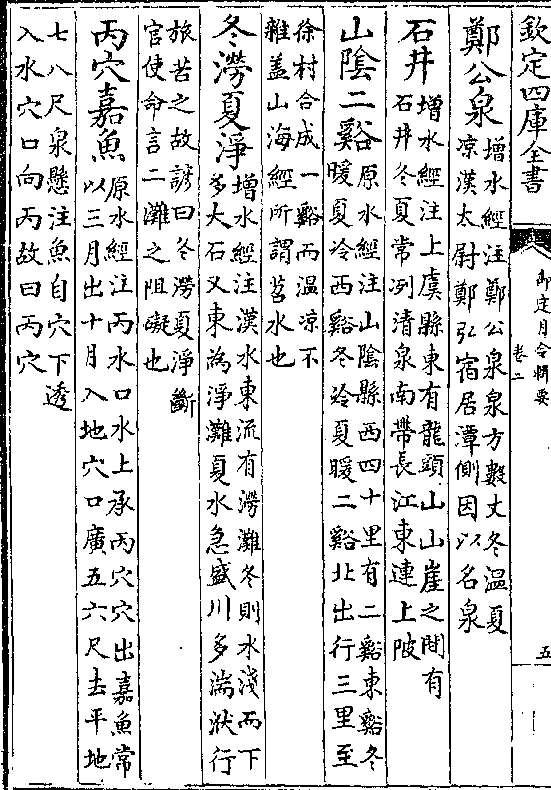 欽定四庫全書
御定月令輯要
卷二
五
鄭公泉
增水經注鄭公泉泉方數丈冬温夏
凉漢太尉鄭弘宿居潭側因以名泉
石井
增水經注上虞縣東有龍頭山山崖之間有
石井冬夏常冽清泉南帶長江東連上陂
山陰二谿
原水經注山陰縣西四十里有二谿東谿冬
暖夏冷西谿冬冷夏暖二谿北出行三里至
徐村合成一谿而温凉不
雜盖山海經所謂苕水也
冬澇夏淨
增水經注漢水東流有澇灘冬則水淺而下
多大石又東為淨灘夏水急盛川多湍洑行
旅苦之故諺曰冬澇夏淨斷
官使命言二灘之阻礙也
丙穴嘉魚
原水經注丙水口水上承丙穴穴出嘉魚常
以三月出十月入地穴口廣五六尺去平地
七八尺泉懸注魚自穴下透
入水穴口向丙故曰丙穴